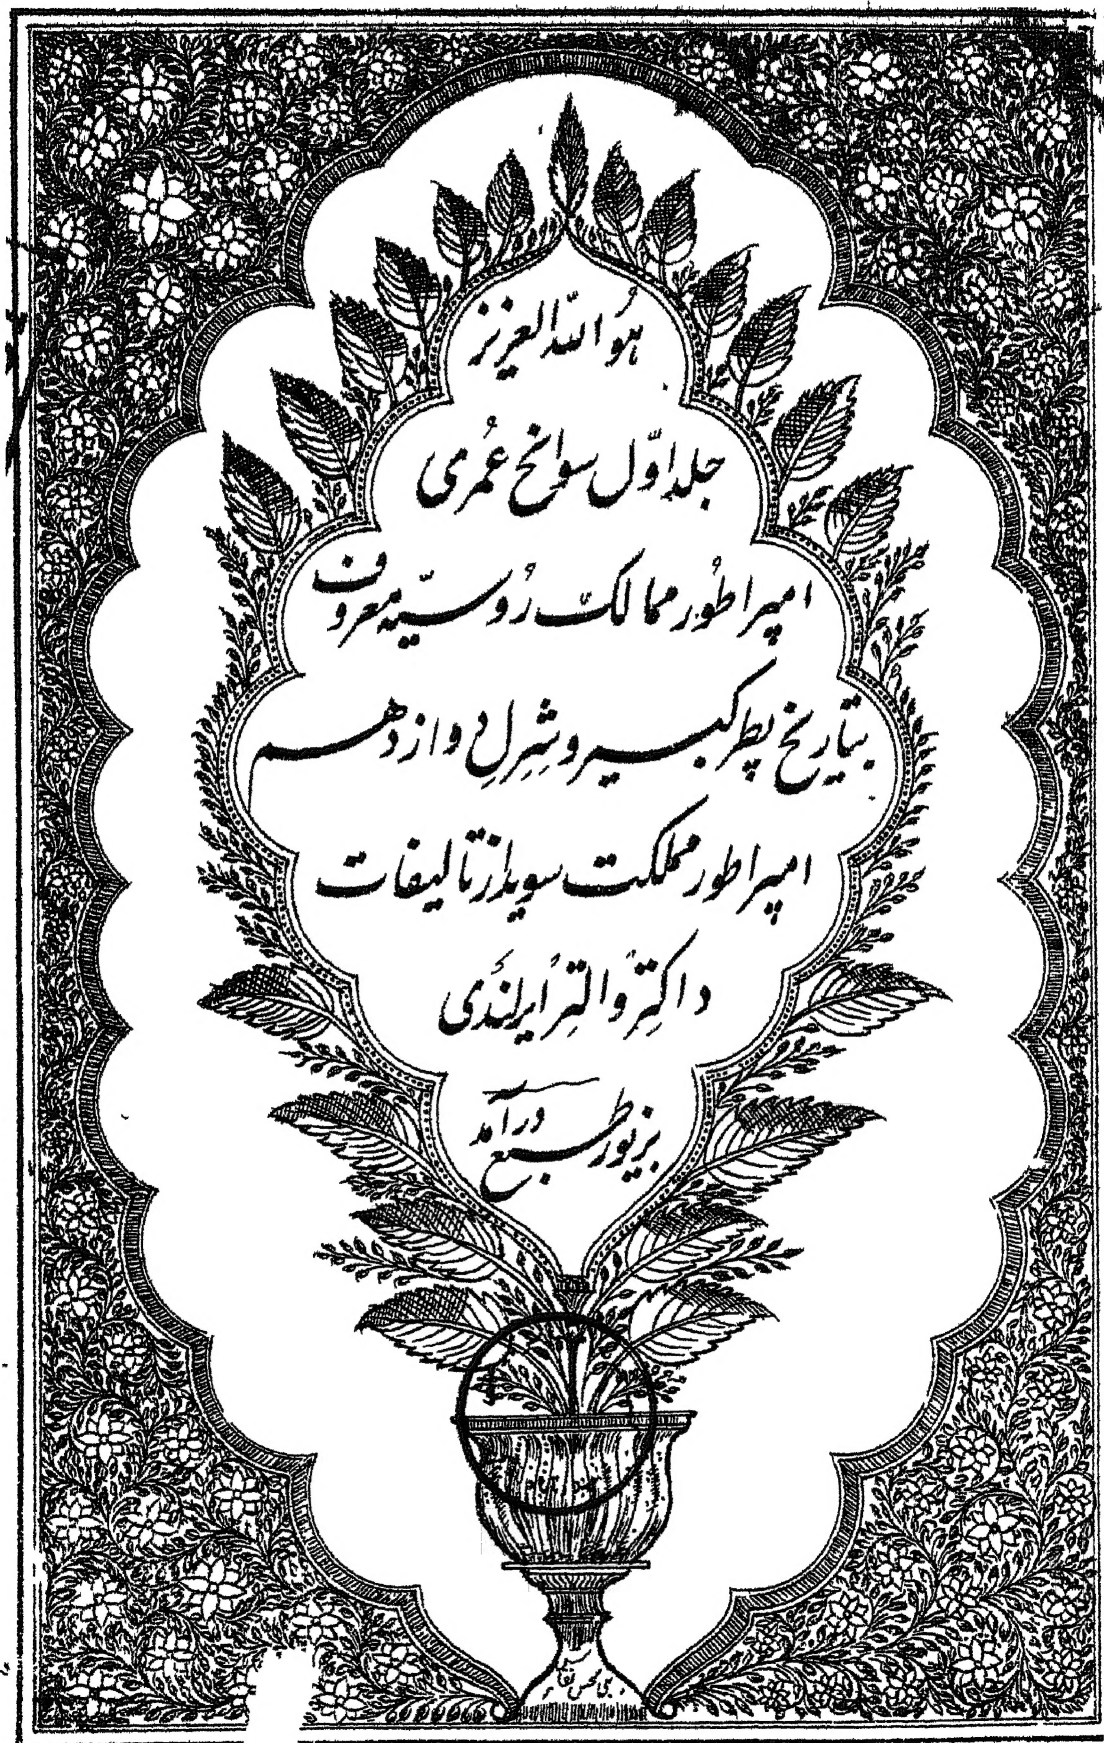 هُو اللّه العزیز
جلد اوّل سوانح عُمری
امپراطُور ممالک رُوسیّه معروف
بتاریخ پطر کبیر و شِرلِ دوازدهم
امپراطور مملکت سوید از تالیفات
داکتِر والتِر ایرلَندی
بزیور طبع درآمد